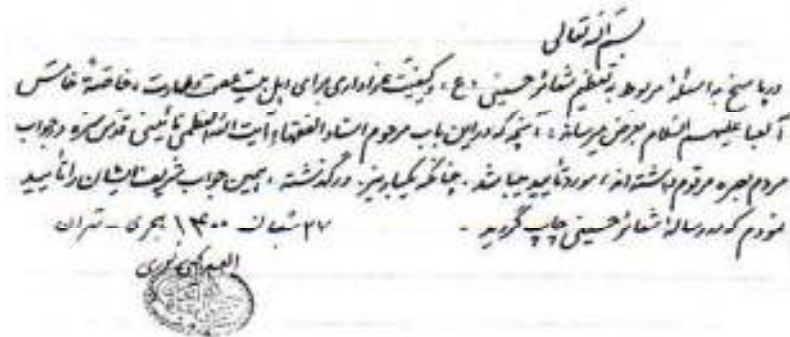 بسم الله تعالی
در پاسخ به اسئلهٔ مربوط به تعظیم شعائر حسینی «ع» و کیفیت عزاداری برای اهل بیت عصمت و طهارت، خاصّهٔ خامس
آلعبا علیهم السّلام بعرض میرساند، آنچه که در این باب مرحوم استاد الفقهاء آیت الله العظمی نائینی قدّس سرّه در جواب
مردم بصره مرقوم داشته‌اند، مورد تأیید میباشد. چنانکه یکبار نیز در گذشته، همین جواب شریف ایشان را تأیید
نمودم که در رسالهٔ شعائر حسینی چاپ گردید. ۲۷ شعبان ۱۴۰۰ هجری - تهران
العبد یحیی نوری